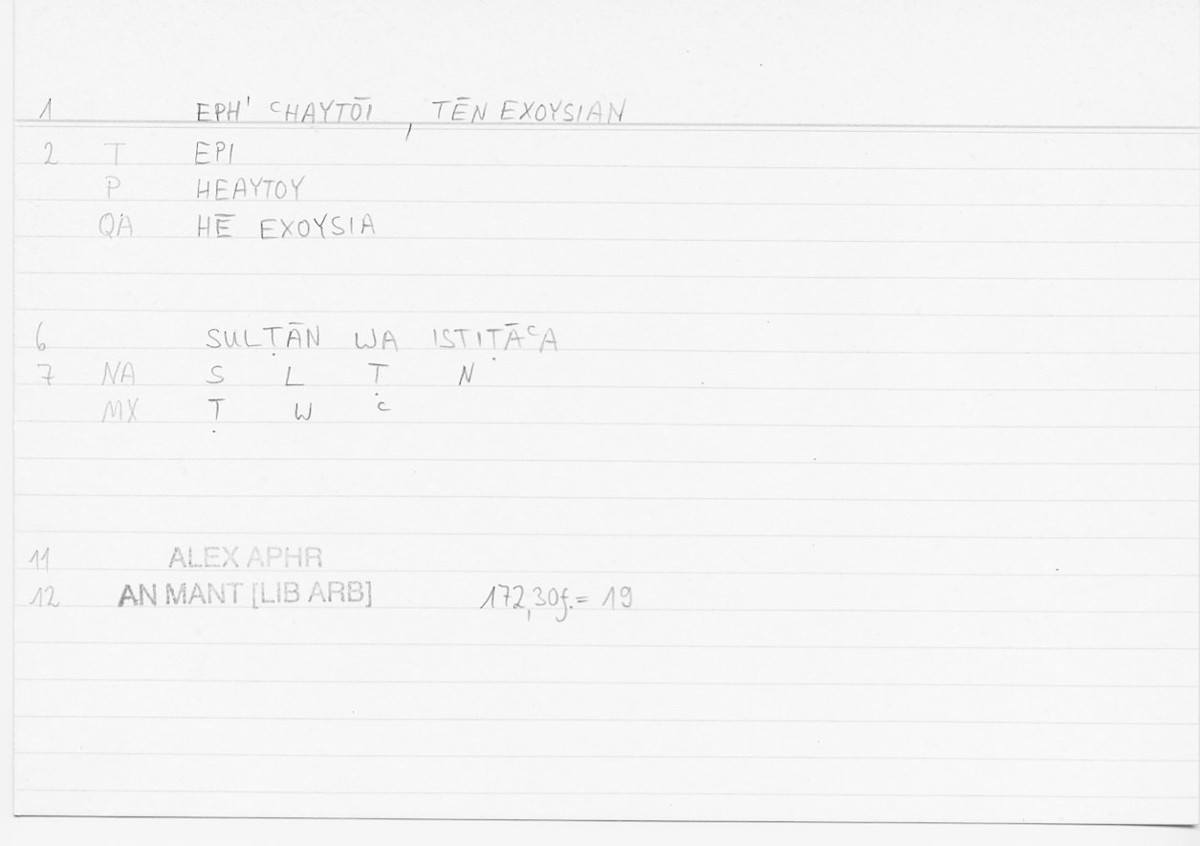 1 EPH' ᶜHAYTŌI, TĒN EXOYSIAN
2 T EPI
P HEAYTOY
QA HĒ EXOYSIA
6 SULṬĀN WA ISTIṬĀᶜA
7 NA S L Ṭ N
MX Ṭ W ᶜ
11 ALEX APHR
12 AN MANT [LIB ARB] 172,30f.= 19